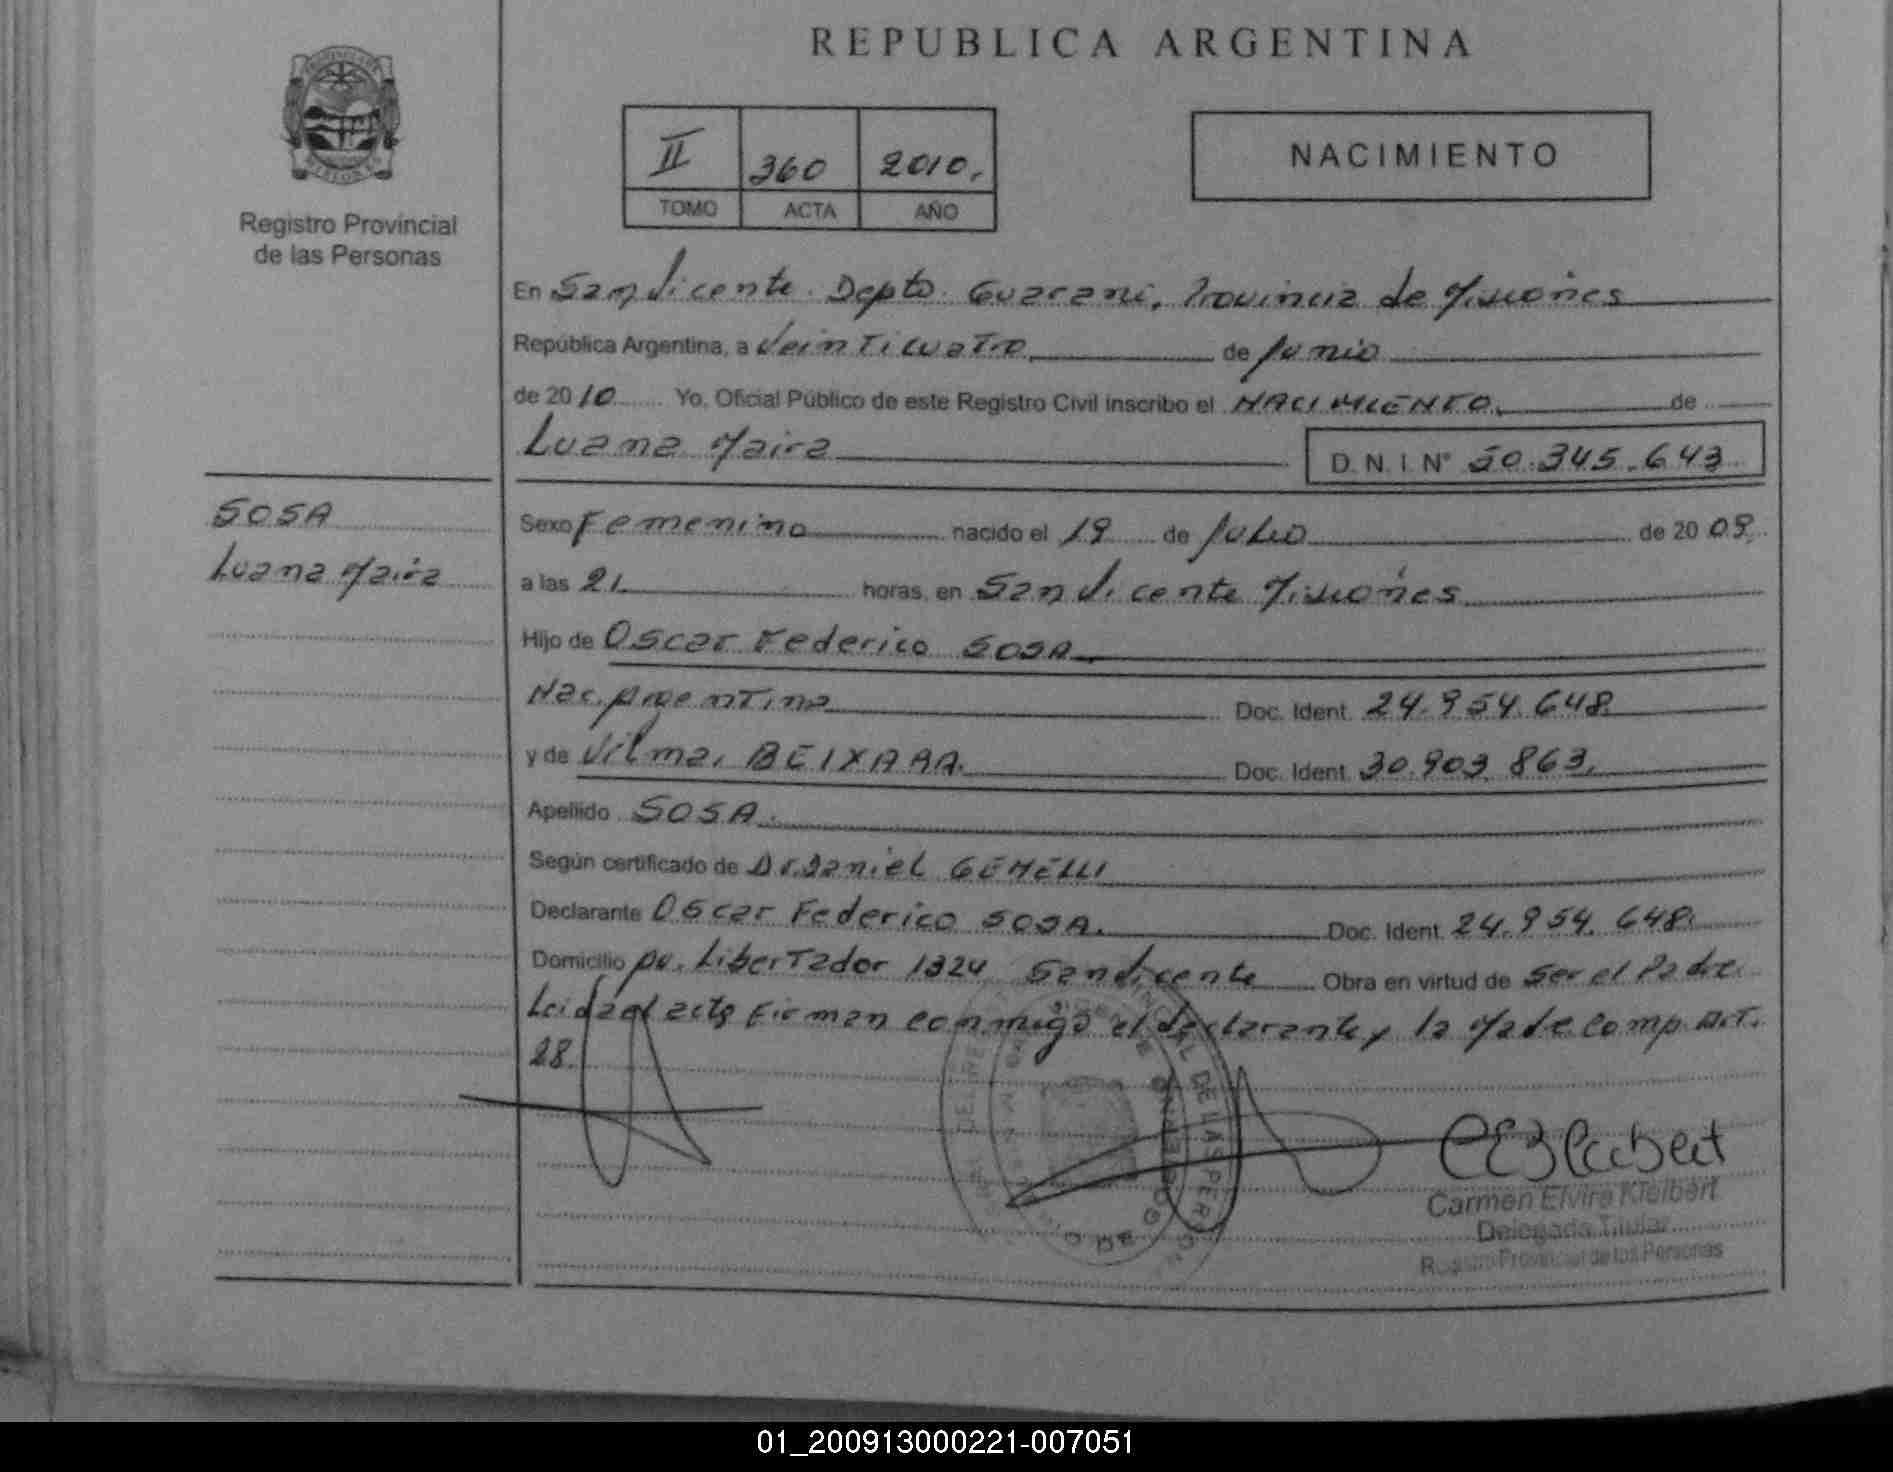 REPUBLICA ARGENTINA
Registro Provincial
de las Personas
II 360 2010.
TOMO ACTA AÑO
NACIMIENTO
En San Vicente Depto Guarani, Provincia de Misiones
República Argentina, a veinticuatro de Junio
de 2010 Yo, Oficial Público de este Registro Civil inscribo el NACIMIENTO de
Luana Maira
D. N. I. N° 50.345.643
SOSA
Luana Maira
Sexo Femenino nacido el 19 de Julio de 2009.
a las 21. horas, en San Vicente Misiones
Hijo de Oscar Federico SOSA
Nac. Argentina Doc. Ident. 24.954.648
y de Vilma, BEIXARA. Doc. Ident. 30.903.863.
Apellido SOSA.
Según certificado de Dr. Daniel GEMELLI
Declarante Oscar Federico SOSA. Doc. Ident. 24.954.648.
Domicilio Av. Libertador 1324 San Vicente Obra en virtud de Ser el Padre
Leida el acta Firman conmigo el declarante y la Madre Comp. Art.
28.
Carmen Elvira Kleibert
Delegada Titular
Registro Provincial de las Personas
01_200913000221-007051